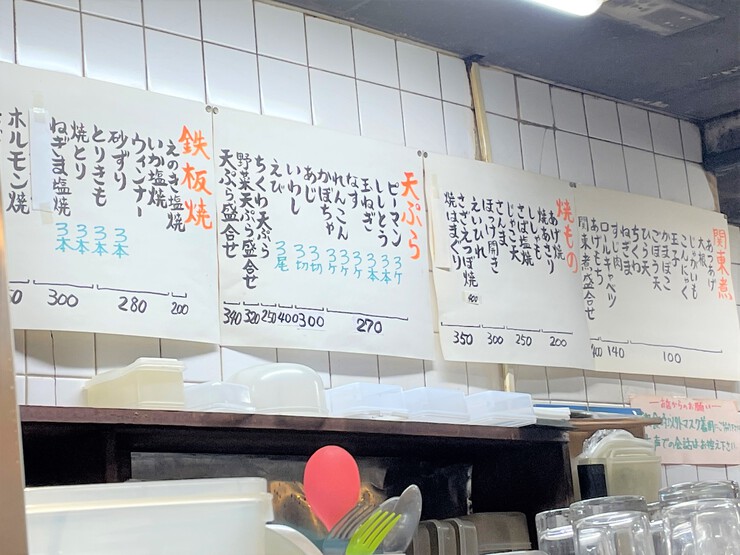 関東煮
あつあげ
大根
じゃがいも
こんにゃく
玉子
かまぼこ
ごぼう天
ひら天
ちくわ
ねぎま
すじ肉
ロールキャベツ
あげもち
関東煮盛合せ
100
140
400
焼もの
あげ焼
焼あさり
ししゃも
さば塩焼
じゃこ天
さんま
ほっけ開き
えいひれ
さざえつぼ焼
400
焼はまぐり
200
250
300
350
天ぷら
ピーマン 3ケ
ししとう 3本
玉ねぎ 3本
なす 3ケ
れんこん 3ケ
かぼちゃ 3切
あじ
いわし 3切
えび 3尾
ちくわ天ぷら
野菜天ぷら盛合せ
天ぷら盛合せ
270
300
400
250
320
390
鉄板焼
えのき塩焼
いか塩焼
ウィンナー
砂ずり
とりきも 3本
焼とり 3本
ねぎま塩焼 3本
ホルモン焼
200
280
300
お店からのお願い